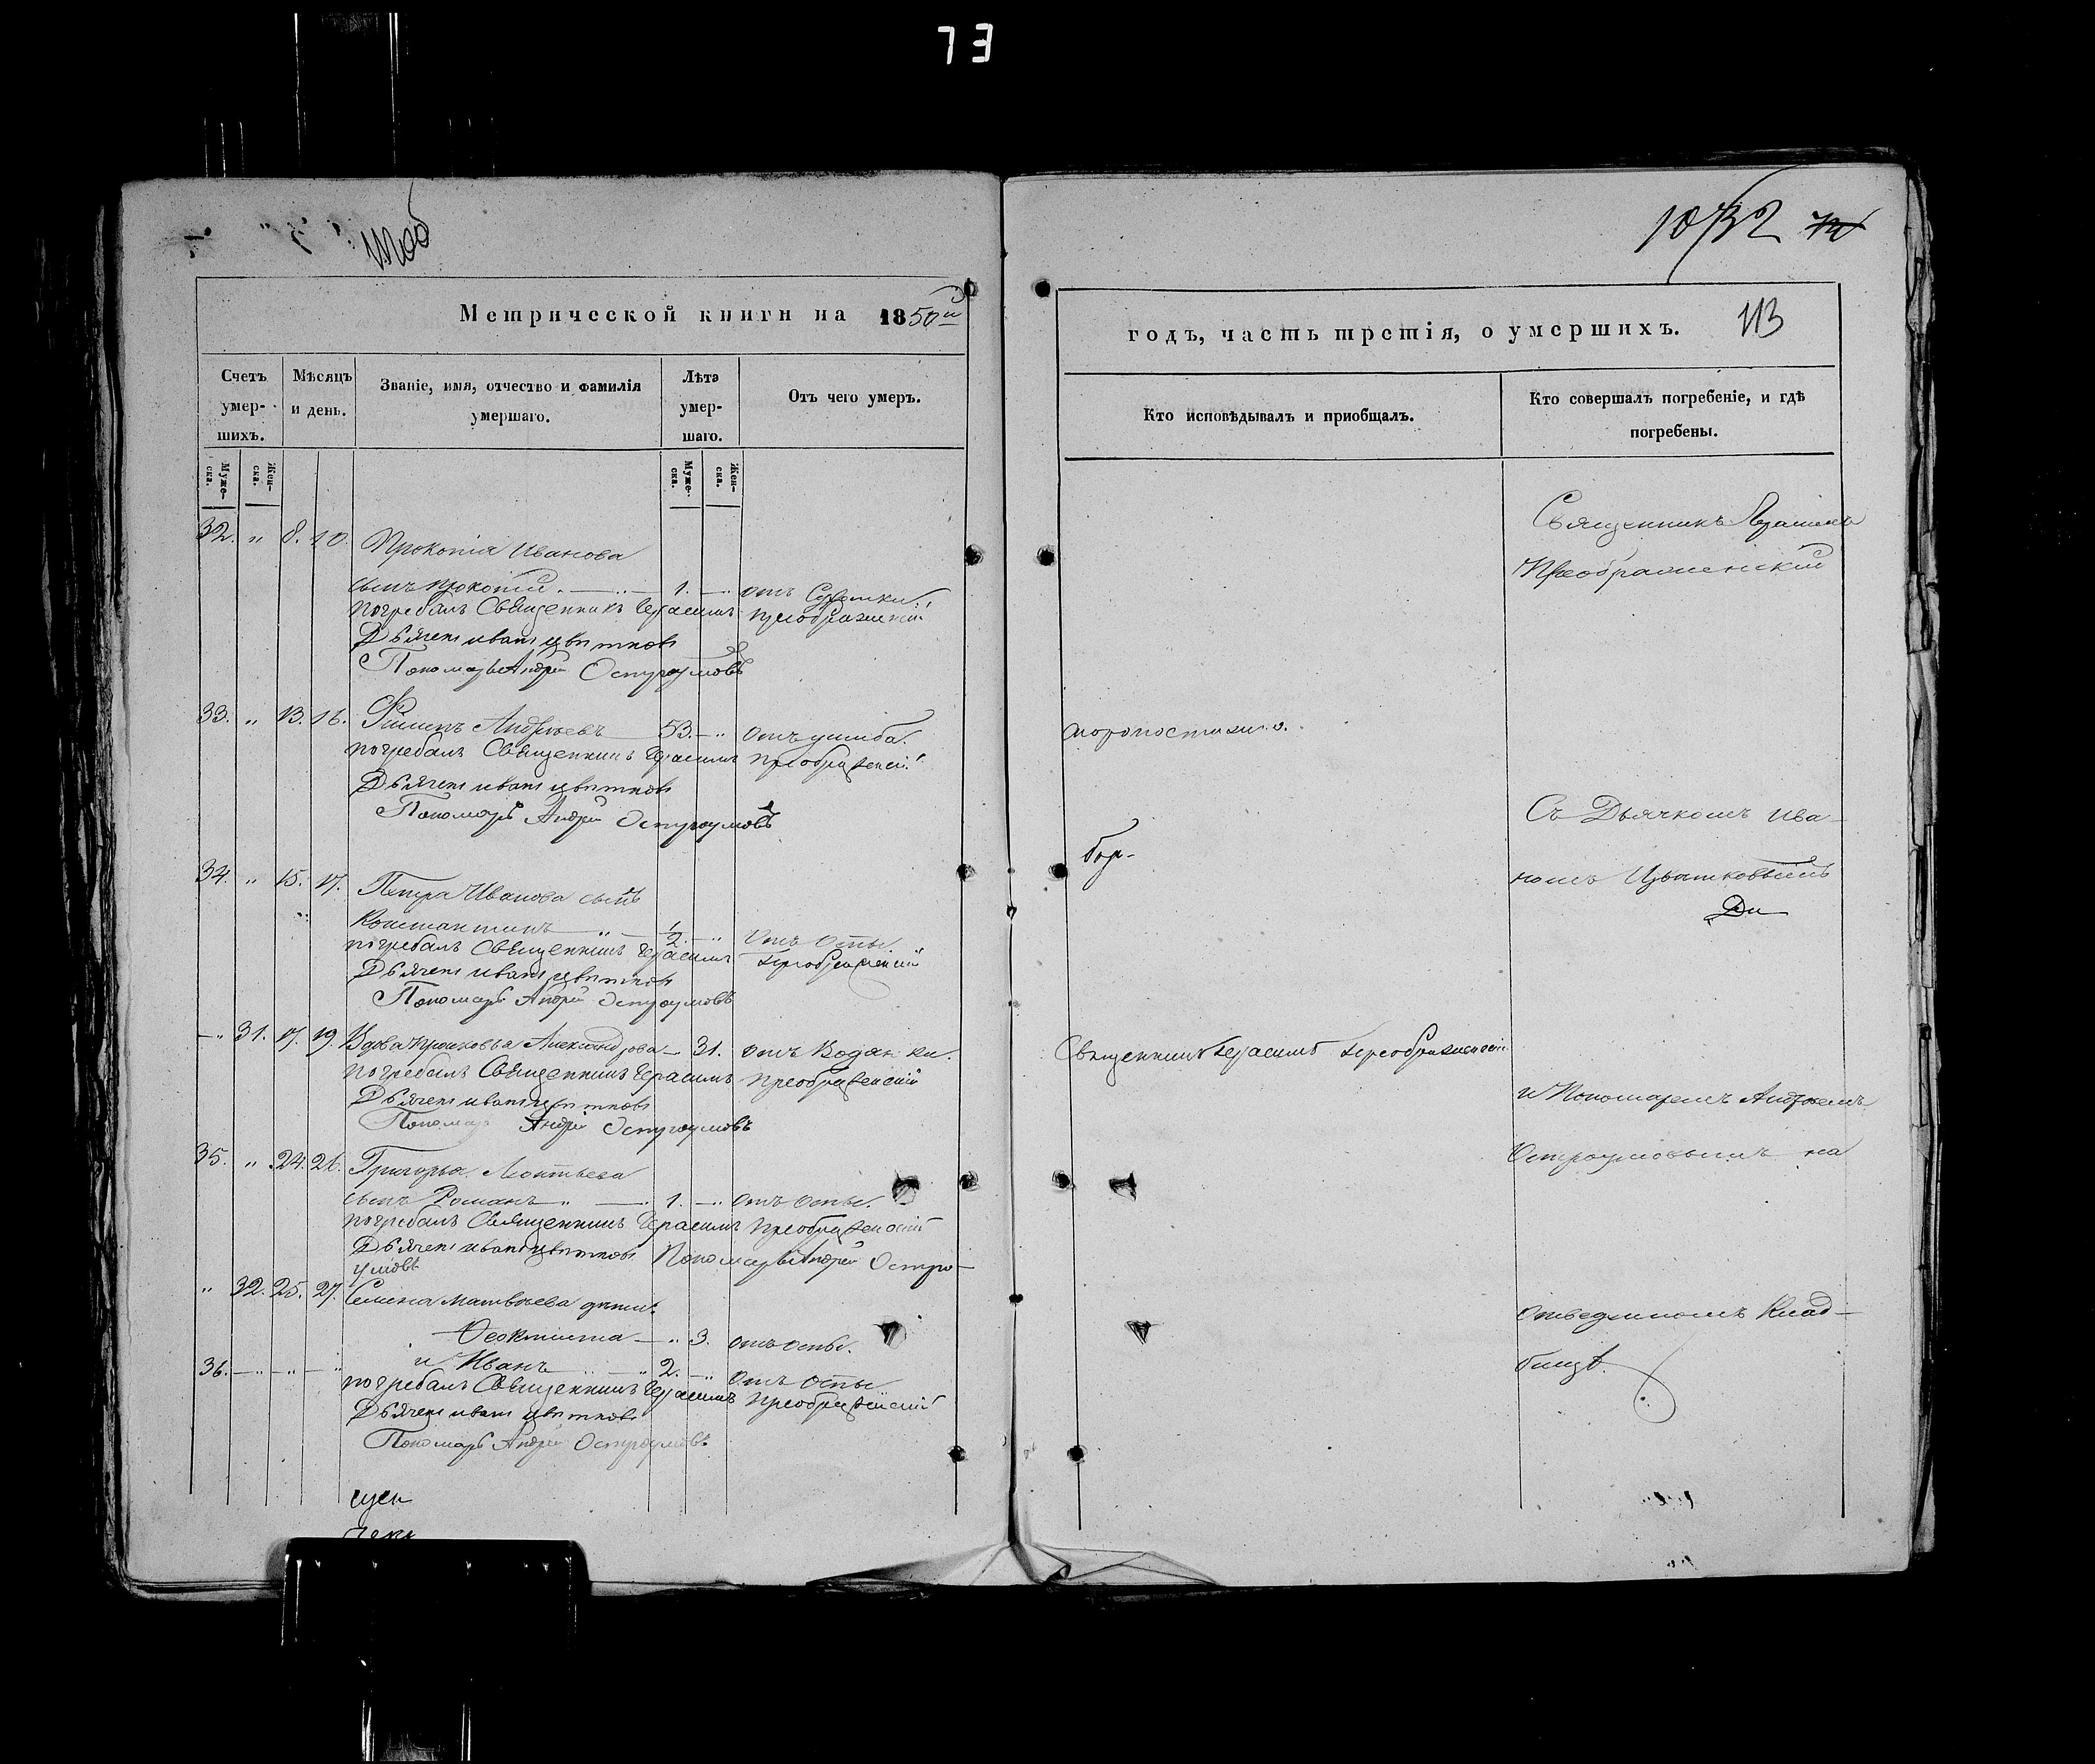 73
1032
Метрической книги на 1850й
годъ, часть третія, о умершихъ.
113
Счетъ умер-шихъ.
Мѣсяцъ и день.
Званіе, имя, отчество и фамилія умершаго.
Лѣта умер-шаго.
Отъ чего умеръ.
Кто исповѣдывалъ и приобщалъ.
Кто совершалъ погребеніе, и гдѣ погребены.
Муже-ска.
Жен-ска.
Муже-ска.
Жен-ска.
32. " 8. 10. Прокопія Иванова
сынъ Прокопій 1. отъ
погребалъ Священникъ Герасимъ Преображенскій
Дьячекъ иванъ цвѣтковъ
Пономарь Андрей Остроумовъ
33. " 13. 16. Филипъ Андреевъ 53. " отъ ушиба.
погребалъ Священникъ Герасимъ Преображенскій
Дьячекъ иванъ цвѣтковъ
Пономарь Андрей Остроумовъ
34. " 15. 17. Петра Иванова сынъ
Константинъ " 1/2 " отъ оспы
погребалъ Священникъ Герасимъ Преображенскій
Дьячекъ иванъ цвѣтковъ
Пономарь Андрей Остроумовъ
" 31. 17. 19. Вдова прасковья Александрова 31. отъ Водянки.
погребалъ Священникъ Герасимъ Преображенскій
Дьячекъ иванъ цвѣтковъ
Пономарь Андрей Остроумовъ
35. " 24. 26. Григорья Леонтьева
сынъ Романъ " 1. " отъ оспы.
погребалъ Священникъ Герасимъ Преображенскій
Дьячекъ иванъ цвѣтковъ Пономарь Андрей Остро-
умовъ
" 32. 25. 27. Семена матвѣева дѣти:
Феоктиста " 3. отъ оспы.
36. и Иванъ 2. " отъ оспы
погребалъ Священникъ Герасимъ Преображенскій
Дьячекъ иванъ цвѣтковъ
Пономарь Андрей Остроумовъ
Священникъ Герасимъ
Преображенскій
Съ Дьячкомъ Ива-
номъ Цвѣтковымъ
Священникъ Герасимъ Преображенскій
и Пономаремъ Андреемъ
Остроумовымъ на
отведенномъ Клад-
бищѣ.